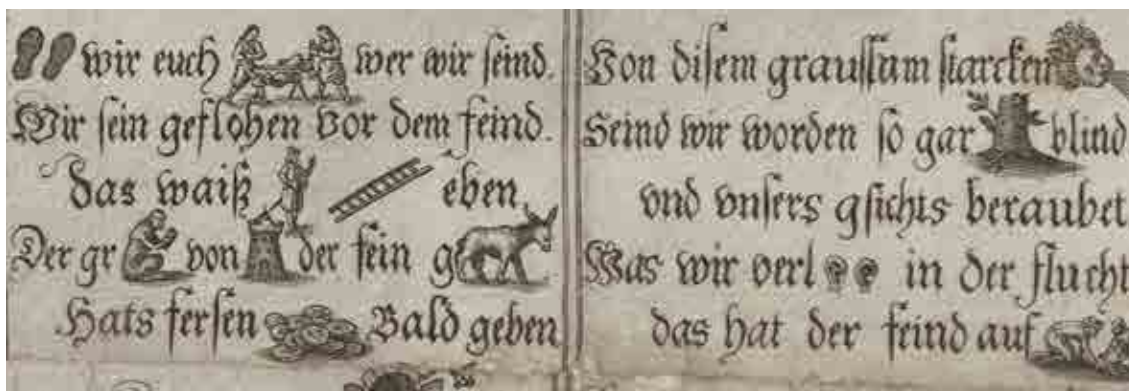 wir euch wer wir seind.
Wir sein geflohen Vor dem feind.
das waiß eben
Der gr von der sein g
Hats fersen Bald geben
Von disem graussam starcken
Seind wir worden so gar blind
vnd vnsers gsichts beraubet
Was wir verl in der flucht
das hat der feind auf